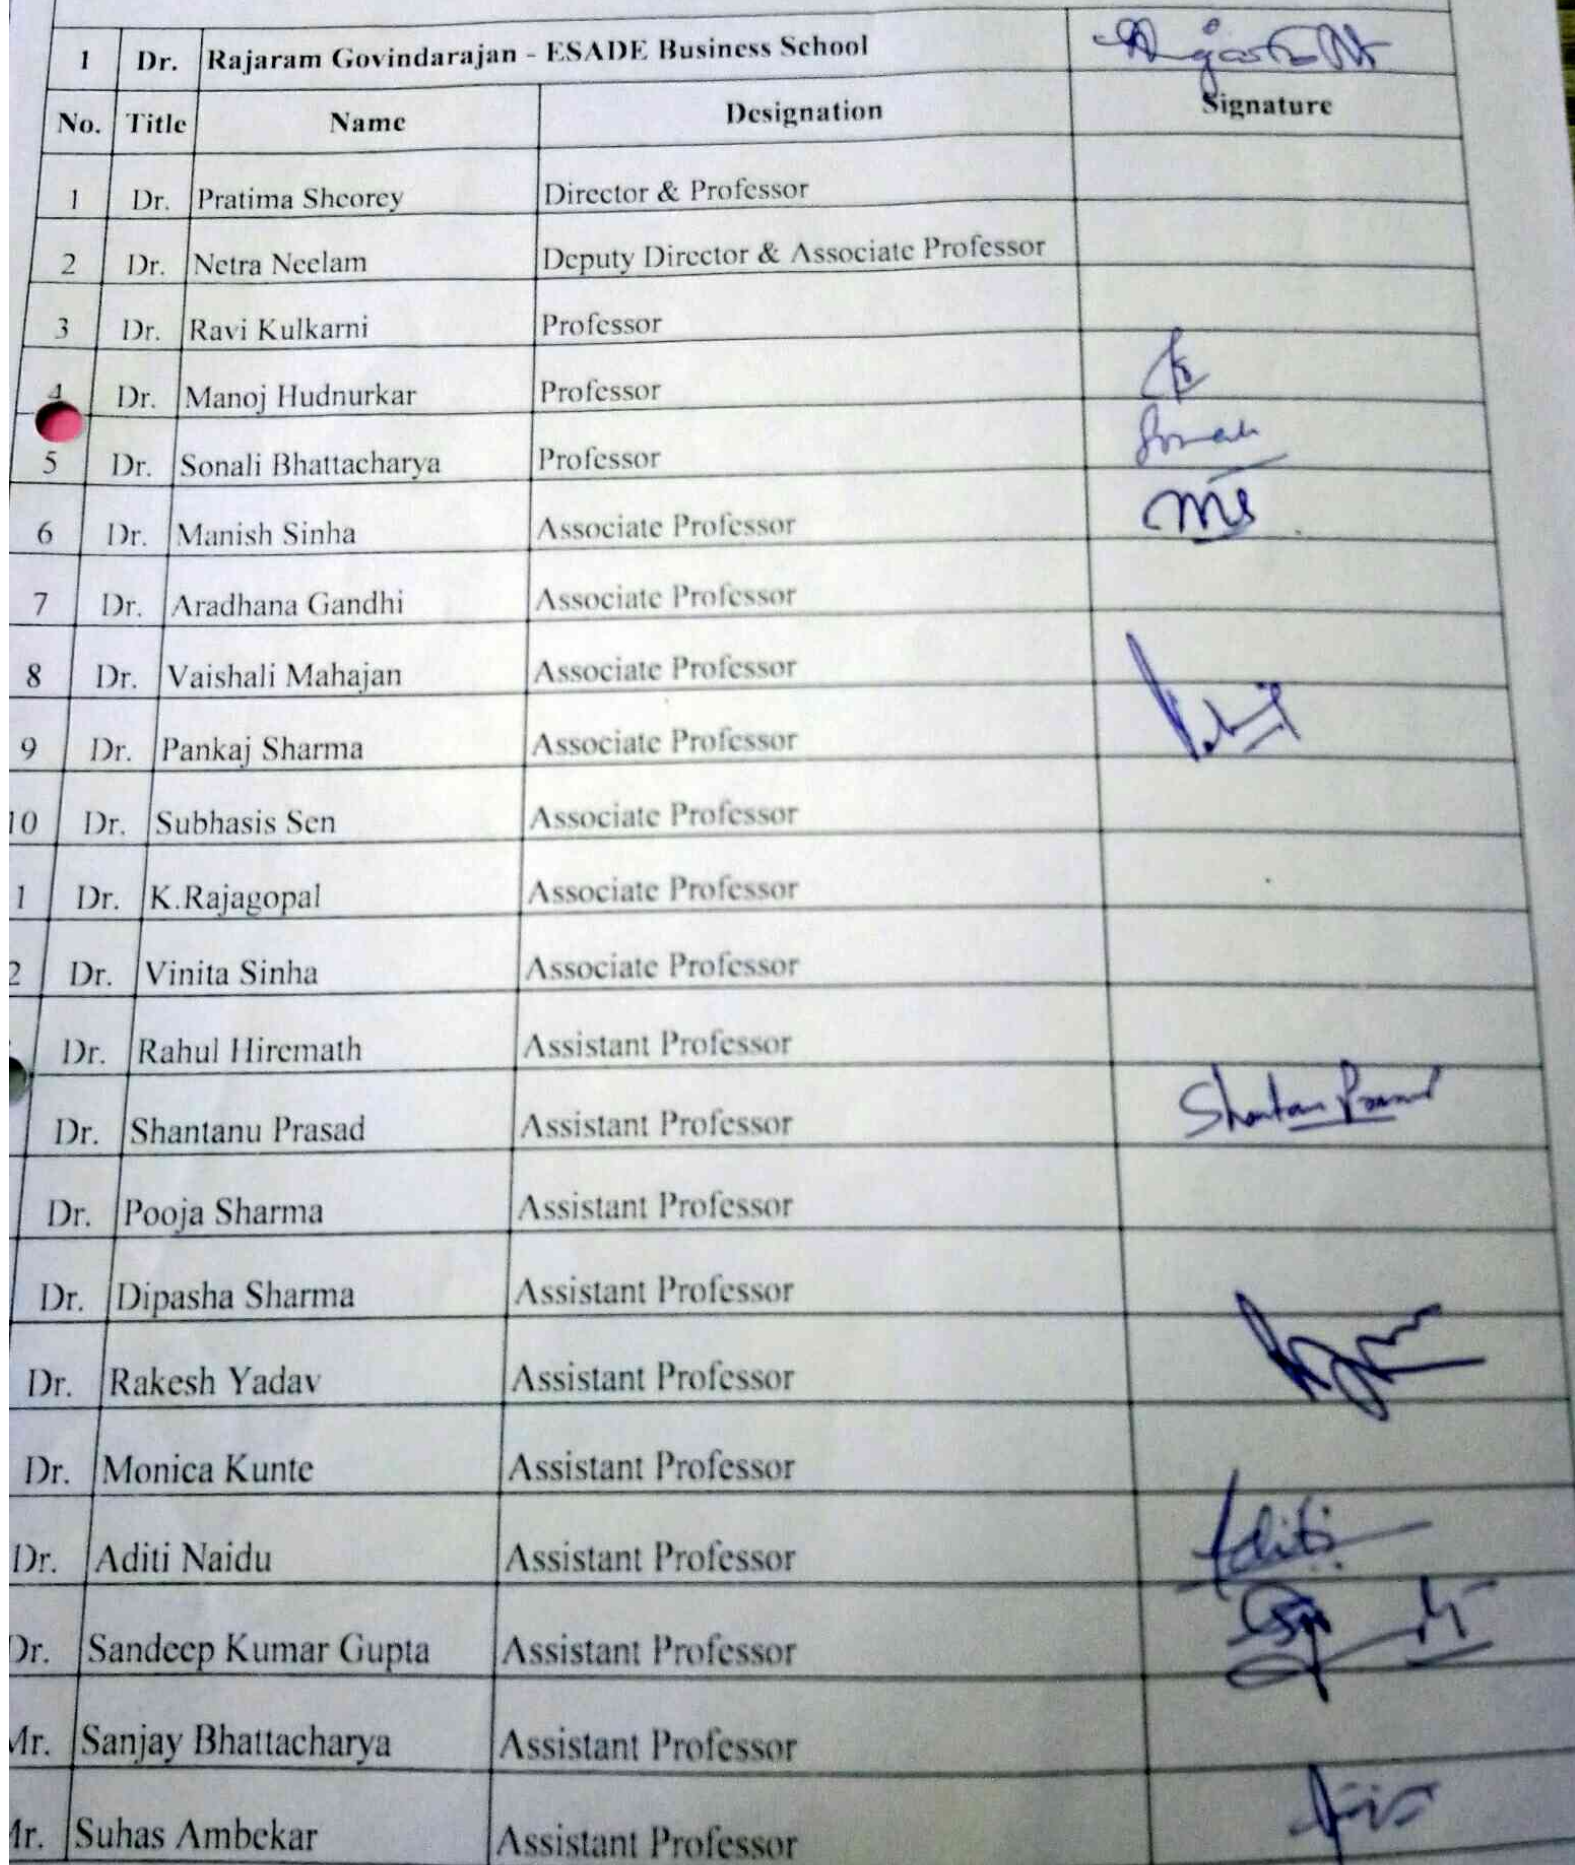 1 Dr. Rajaram Govindarajan - ESADE Business School
No. Title Name Designation Signature
1 Dr. Pratima Sheorey Director & Professor
2 Dr. Netra Neelam Deputy Director & Associate Professor
3 Dr. Ravi Kulkarni Professor
4 Dr. Manoj Hudnurkar Professor
5 Dr. Sonali Bhattacharya Professor
6 Dr. Manish Sinha Associate Professor MS
7 Dr. Aradhana Gandhi Associate Professor
8 Dr. Vaishali Mahajan Associate Professor
9 Dr. Pankaj Sharma Associate Professor
10 Dr. Subhasis Sen Associate Professor
1 Dr. K.Rajagopal Associate Professor
2 Dr. Vinita Sinha Associate Professor
Dr. Rahul Hiremath Assistant Professor
Dr. Shantanu Prasad Assistant Professor Shantanu Prasad
Dr. Pooja Sharma Assistant Professor
Dr. Dipasha Sharma Assistant Professor
Dr. Rakesh Yadav Assistant Professor
Dr. Monica Kunte Assistant Professor
Dr. Aditi Naidu Assistant Professor Aditi
Dr. Sandeep Kumar Gupta Assistant Professor
Mr. Sanjay Bhattacharya Assistant Professor
Mr. Suhas Ambekar Assistant Professor